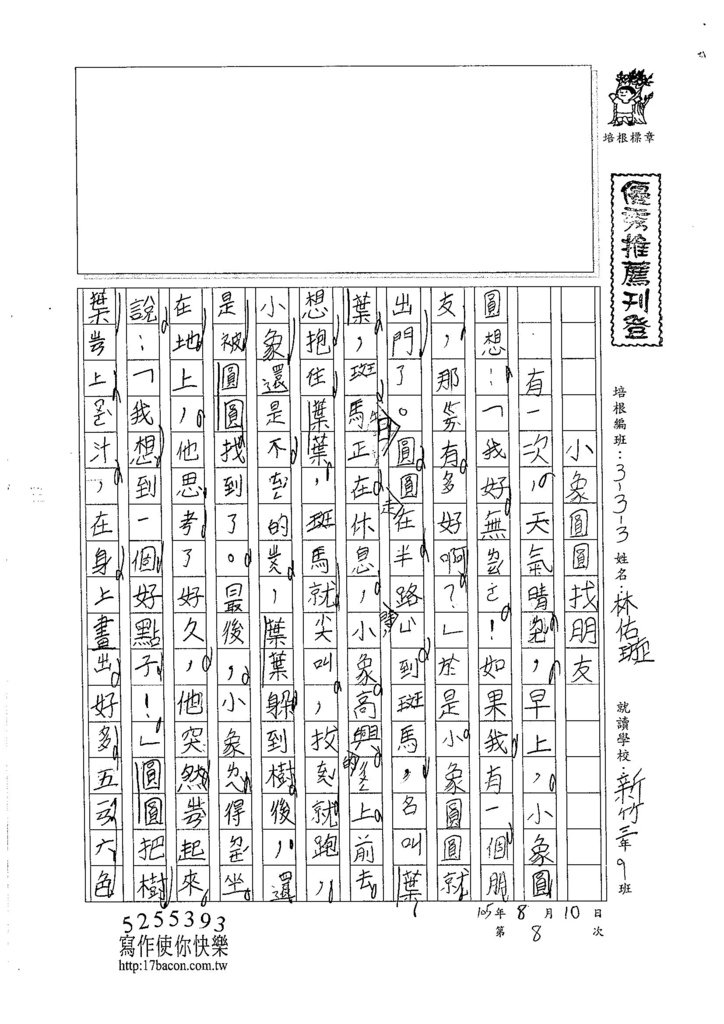 培根標章
優秀推薦刊登
培根編班：3-3-3 姓名：林佑璇 就讀學校：新竹三年9班
105年8月10日
第8次
小象圓圓找朋友
有一次，天氣晴，早上，小象圓
圓想：「我好無！如果我有一個朋
友，那有多好啊？」於是小象圓圓就
出門了。圓圓走在半路上看到斑馬，名叫葉
葉，斑馬正在休息，小象高興的上前去
想抱住葉葉，斑馬就尖叫，就跑，
小象還是不的，葉葉躲到樹後，還
是被圓圓找到了。最後，小象得坐
在地上，他思考了好久，他突然起來
說：「我想到一個好點子！」圓圓把樹
葉上汁，在身上畫出好多五六色
5255393
寫作使你快樂
http:17bacon.com.tw